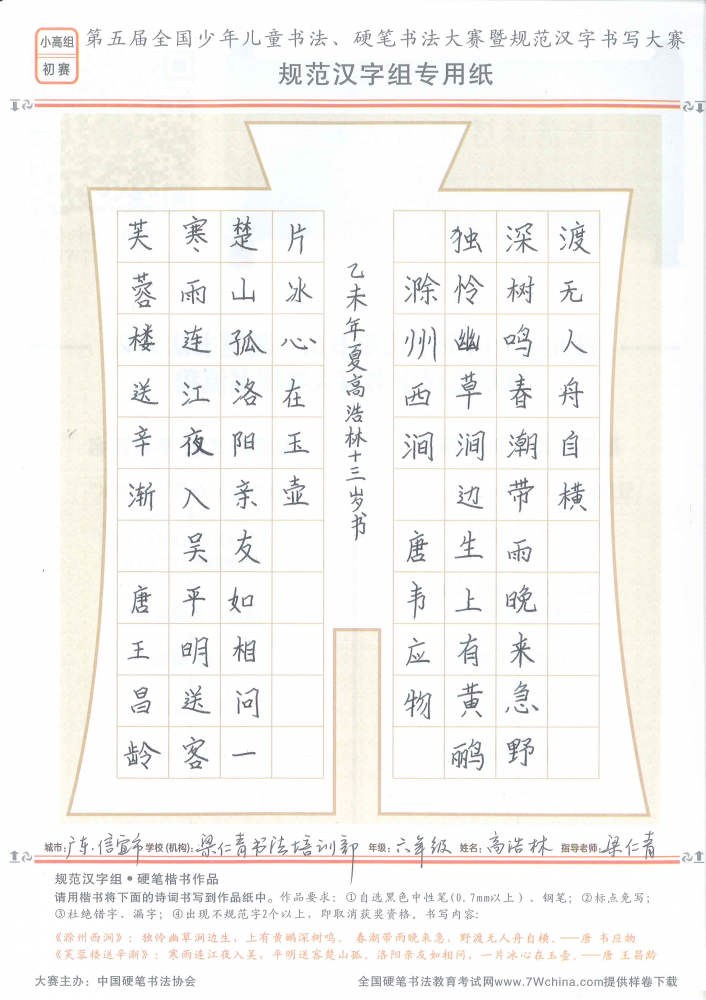 小高组
初赛
第五届全国少年儿童书法、硬笔书法大赛暨规范汉字书写大赛
规范汉字组专用纸
芙蓉楼送辛渐 唐王昌龄
寒雨连江夜入吴平明送客
楚山孤洛阳亲友如相问一
片冰心在玉壶
乙未年夏高浩林十三岁书
滁州西涧 唐韦应物
独怜幽草涧边生上有黄鹂
深树鸣春潮带雨晚来急野
渡无人舟自横
城市:广东·信宜市 学校(机构):梁仁青书法培训部 年级:六年级 姓名:高浩林 指导老师:梁仁青
规范汉字组•硬笔楷书作品
请用楷书将下面的诗词书写到作品纸中。作品要求：①自选黑色中性笔(0.7mm以上)、钢笔；②标点免写；
③杜绝错字、漏字；④出现不规范字2个以上，即取消获奖资格。书写内容：
《滁州西涧》：独怜幽草涧边生，上有黄鹂深树鸣。 春潮带雨晚来急，野渡无人舟自横。——唐 韦应物
《芙蓉楼送辛渐》：寒雨连江夜入吴，平明送客楚山孤。洛阳亲友如相问，一片冰心在玉壶。——唐 王昌龄
大赛主办：中国硬笔书法协会 全国硬笔书法教育考试网www.7Wchina.com提供样卷下载